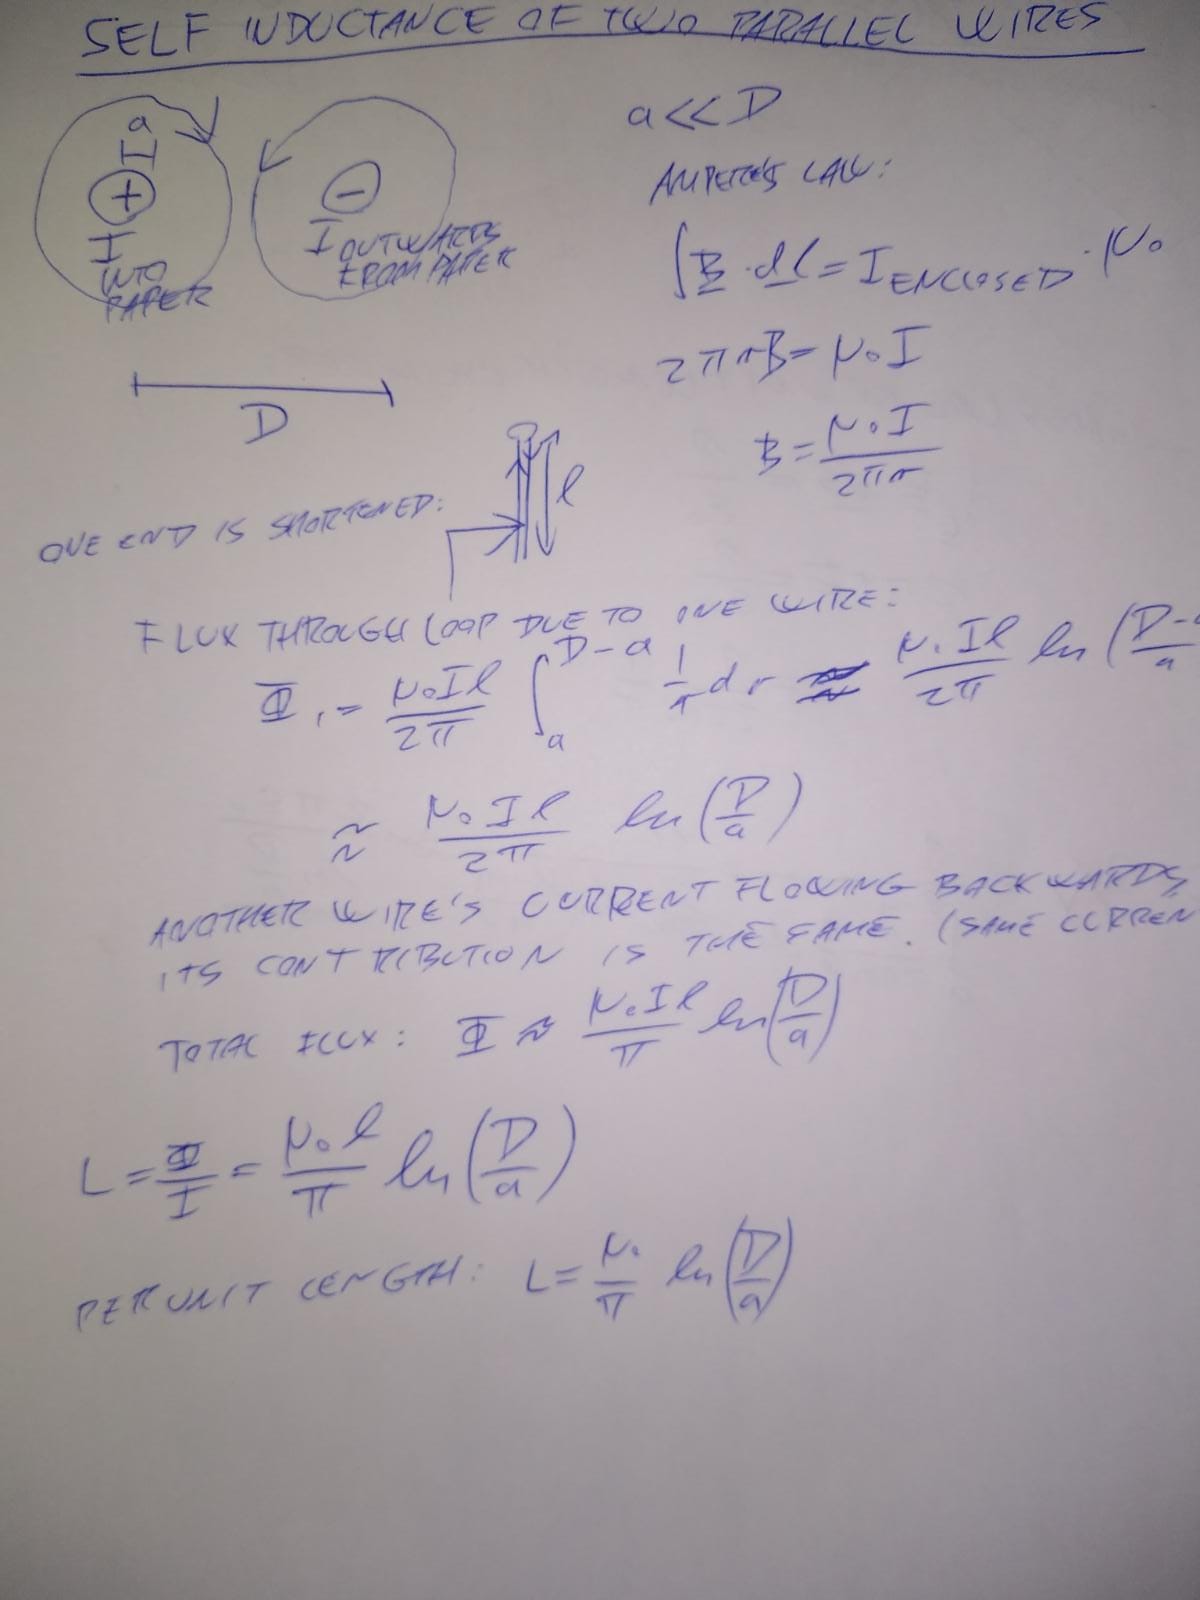 SELF INDUCTANCE OF TWO PARALLEL WIRES
a
I
INTO
PAPER
I OUTWARDS
FROM PAPER
D
a << D
AMPERE'S LAW:
∫ B · dl = I ENCLOSED · μ₀
2πrB = μ₀I
B = μ₀I / 2πr
ONE END IS SHORTENED:
l
FLUX THROUGH LOOP DUE TO ONE WIRE:
Φ₁ = μ₀Il / 2π ∫ₐ^(D-a) 1/r dr ≈ μ₀Il / 2π ln (D-a / a
≈ μ₀Il / 2π ln (D/a)
ANOTHER WIRE'S CURRENT FLOWING BACKWARDS,
ITS CONTRIBUTION IS THE SAME. (SAME CURREN
TOTAL FLUX: Φ ≈ μ₀Il / π ln (D/a)
L = Φ/I = μ₀l / π ln (D/a)
PER UNIT LENGTH: L = μ₀/π ln (D/a)